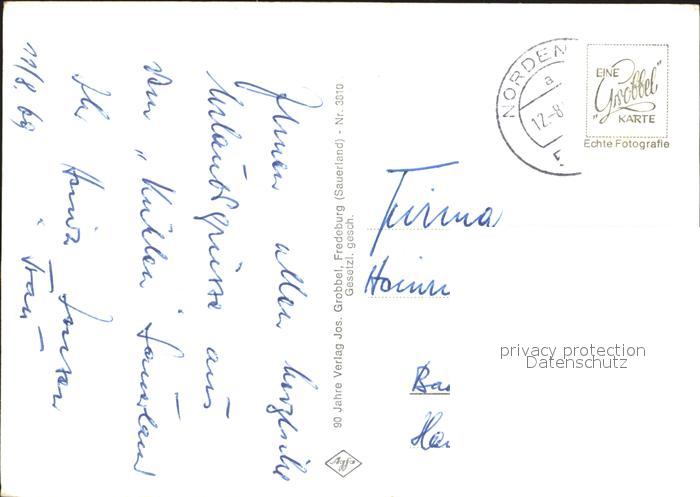 Ihnen allen herzliche
Urlaubsgrüsse aus
dem "Kühlen" Sauerland
Ihr Heinz Jansen
u. Frau
11/8. 69
90 Jahre Verlag Jos. Grobbel, Fredeburg (Sauerland) - Nr. 3610
Gesetzl. gesch.
Agfa
NORDEN
a
12.-8
EINE
"Grobbel"
KARTE
Echte Fotografie
Firma
Heinr
Ba
Ha
privacy protection
Datenschutz